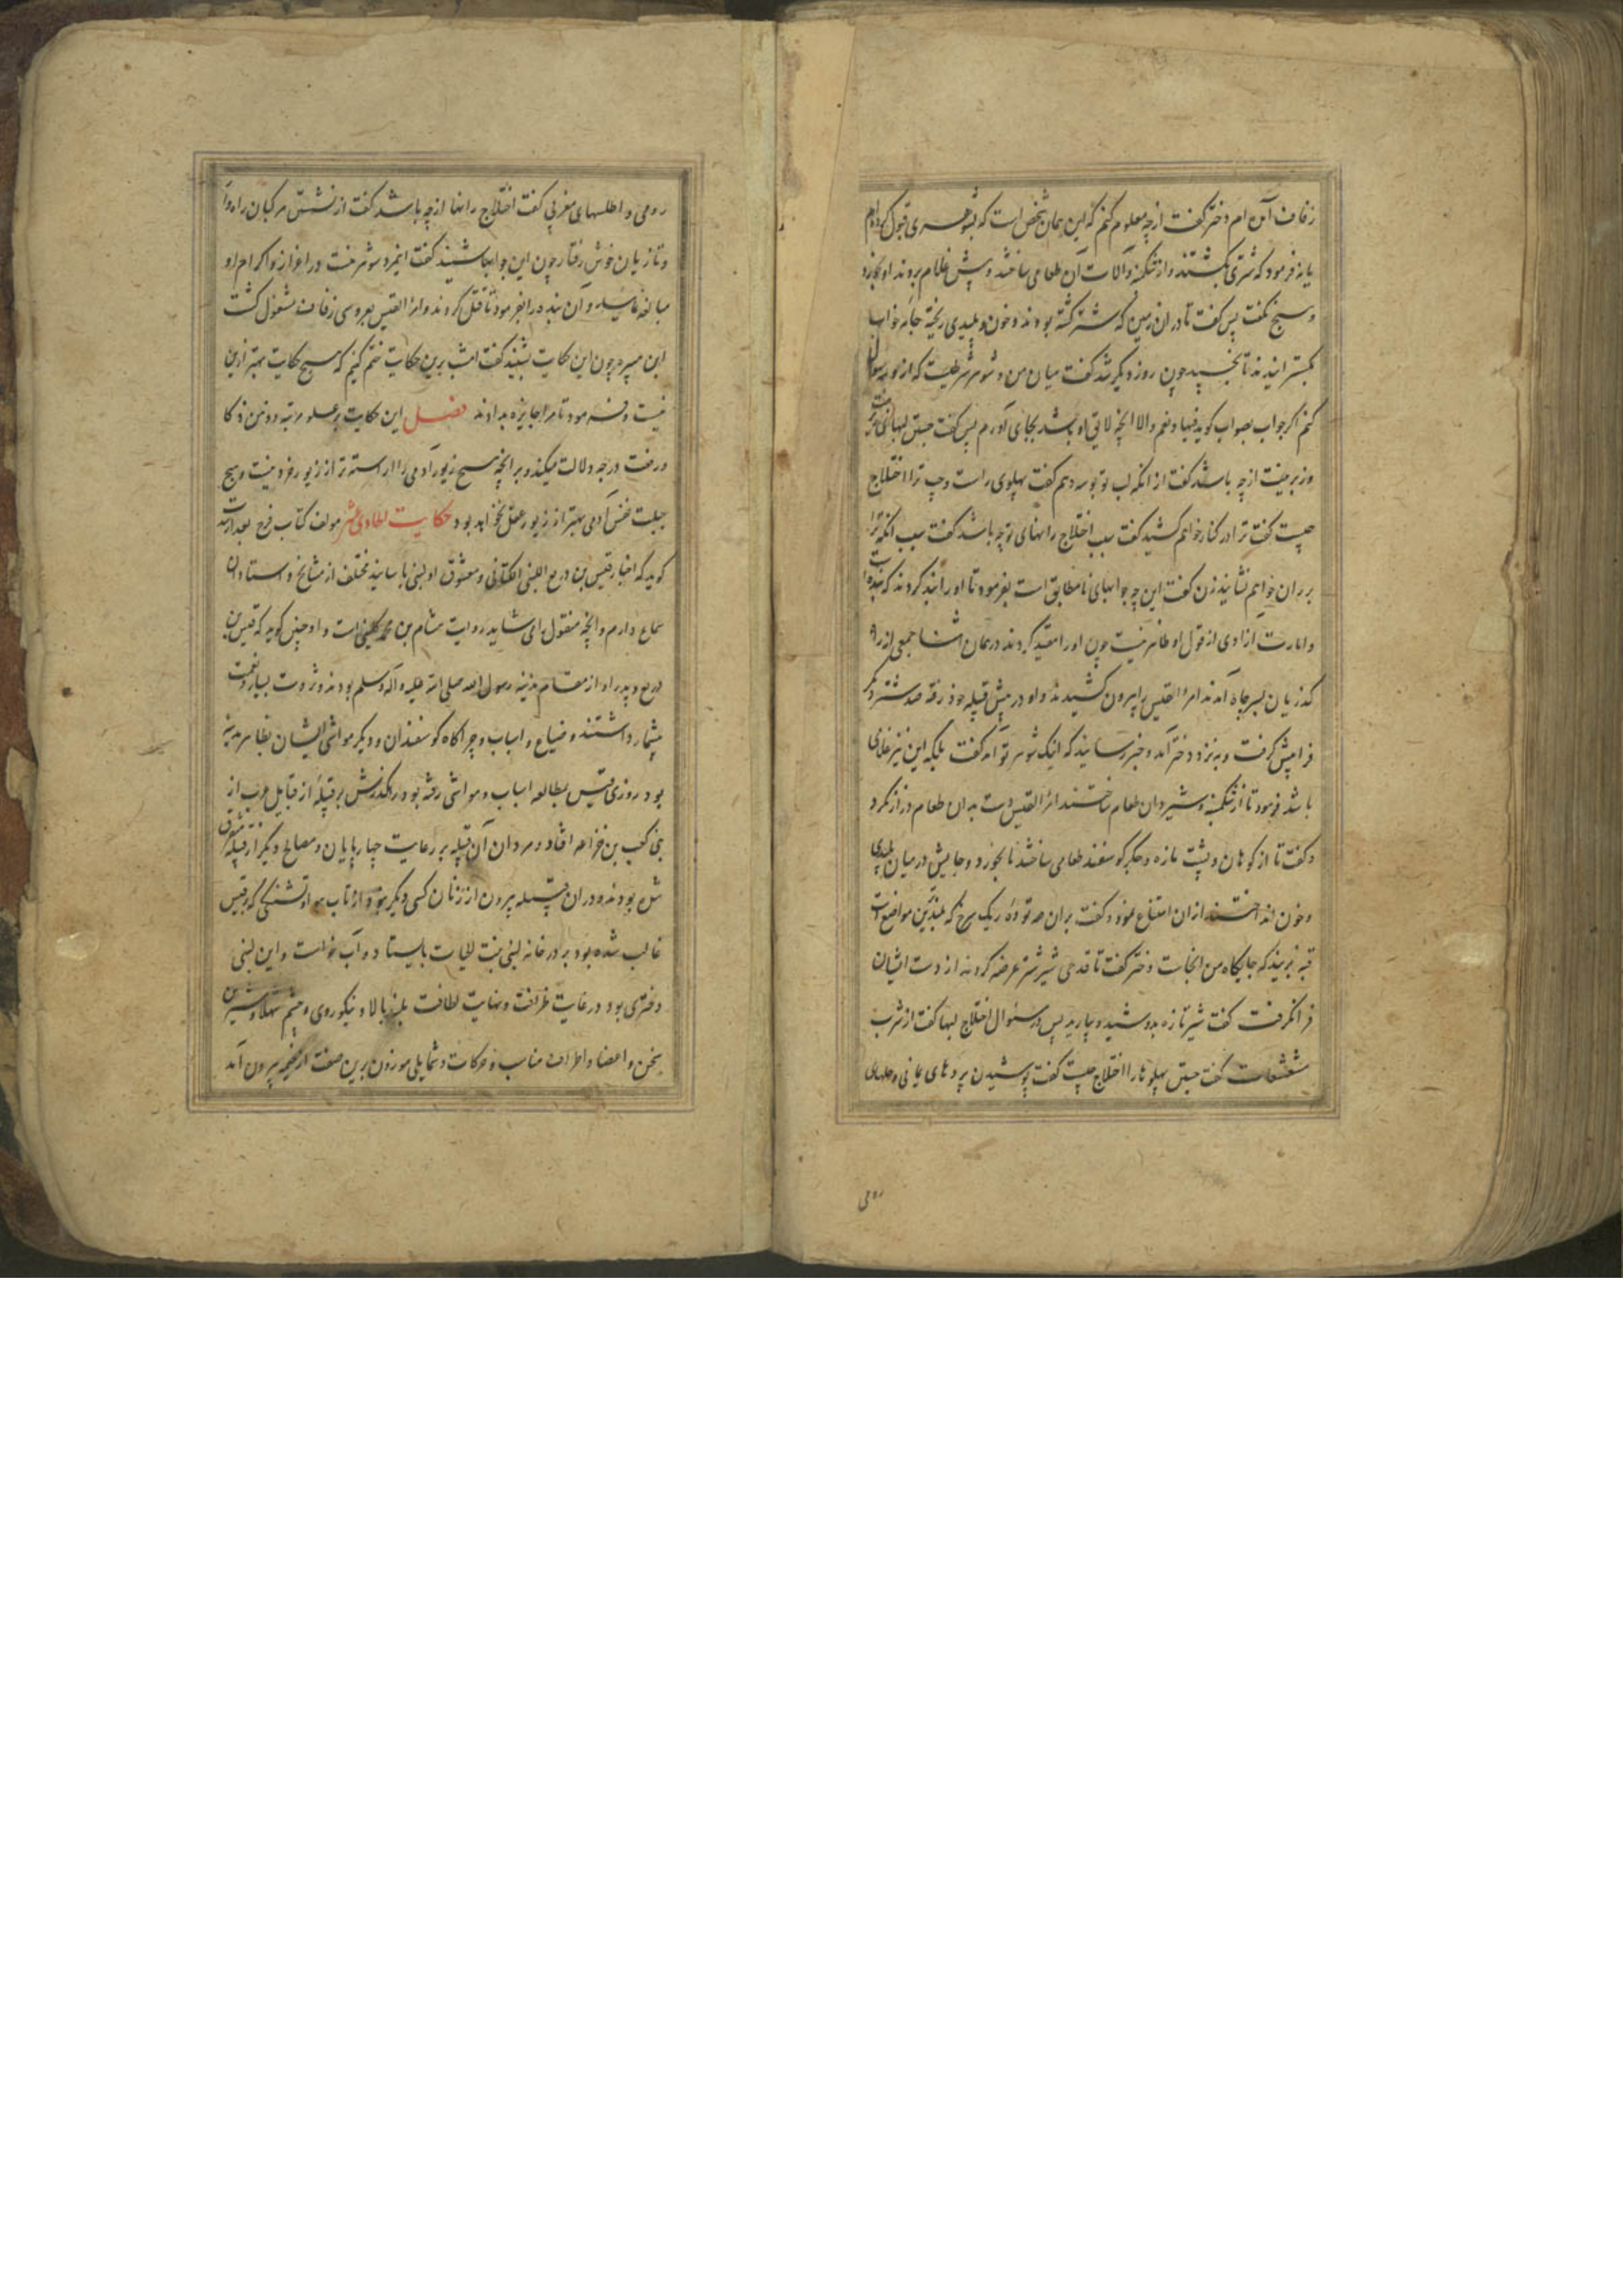 زفاف آمده ام دختر گفت از چه معلوم کنم که این همان شخص است که بشوهری قبول کرده ام
یا نه فرمود که شتری بکشتند و از شکنبه و آلات آن طعامی ساختند و پیش غلام بردند او بخورد
و هیچ نگفت پس گفت تا در ان زمین که شتر کشته بودند و خون و پلیدی ریخته جامه خوابها
بگسترانیدند تا بخسپید چون روز دیگر شد گفت میان من و شوهر شرطیست که از تو سه سوال
کنم اگر جواب بصواب گوید فبها و نعم والا انچه لایق او باشد بجای آورم پس گفت جستن لبهای
از چه باشد گفت از انکه لب تو بوسه دهم گفت پهلوی راست و چپ ترا اختلاج
چیست گفت ترا در کنار خواهم کشید گفت سبب اختلاج رانهای تو چه باشد گفت سبب انکه ترا
بر ران خواهم نشانید زن گفت این چه جوابهای نامطابق است بفرمود تا او را بند کردند که بنده است
و امارت ازادی از قول او ظاهر نیست چون او را مقید کردند در همان اثنا جمعی از راه
گذریان بسر چاه آمدند امرؤ القیس را بیرون کشیدند و او در پیش قبیله خود رفته صد شتر دیگر
فرا پیش گرفت و به نزد دختر آمد و خبر رسانیدند که اینک شوهر تو آمد گفت بلکه این نیز غلامی
باشد فرمود تا از شکنبه و شیردان طعام ساختند امرؤ القیس دست بدان طعام دراز نکرد
و گفت تا از کوهان و پشت مازه و جگر گوسفند طعامی ساختند تا بخورد و جایش در میان پلیدی
و خون انداختند از ان امتناع نمود و گفت بران توده ریگ سرخ که بلندترین مواضع است
قبه بزنید که جایگاه من انجاست دختر گفت تا قدحی شیر شتر عرضه کردند از دست ایشان
فرا نگرفت گفت شیر تازه بدوشید و بیارید پس در سئوال اختلاج لبها گفت از شرب
مشعشعات گفت جستن پهلوها را اختلاج چیست گفت پوشیدن بردهای یمانی و حلهای
رومی
رومی و اطلسهای مغربی گفت اختلاج رانها از چه باشد گفت از نشستن مرکبان راهوار
و تازیان خوش رفتار چون این جوابها شنید گفت اینمرد شوهر منست در اعزاز و اکرام او
مبالغه نمایید و آن بنده را بفرمود تا قتل کردند و امرؤ القیس بعروسی و زفاف مشغول گشت
ابن هبیره چون این حکایت بشنید گفت امشب برین حکایت ختم کنیم که هیچ حکایت بهتر ازین
نیست و فرمود تا مرا جایزه بدادند فصل این حکایت بر علو مرتبه و ذهن و ذکا
و رفعت درجه دلالت میکند و بر انچه هیچ زیور آدمی را اراسته تر از زیور خرد نیست و هیچ
جبلت نفس آدمی بهتر از زیور عقل نخواهد بود حکایت الحادی عشر مولف کتاب فرج بعد از شدت
گوید که اخبار قیس بن ذریح اللیثی الکنانی و معشوق او لبنی باسانید مختلف از مشایخ و استادان
سماع دارم و انچه منقول را می شاید روایت هشام بن محمد کلبی است و او چنین گوید که قیس بن
ذریح و پدر او از مقام مدینه رسول الله صلی الله علیه و آله وسلم بودند و ثروت بسیار و نعمت
بیشمار داشتند و ضیاع و اسباب و چراگاه گوسفندان و دیگر مواشی ایشان بظاهر مدینه
بود روزی قیس بمطالعه اسباب و مواشی رفته بود رهگذرش بر قبیلهٔ از قبایل عرب از
بنی کعب بن خزاعه افتاد و مردان آن قبیله بر رعایت چهارپایان و مصالح دیگر از قبیله متفرق
شده بودند و در ان قبیله بیرون از زنان کسی دیگر نبود و از تاب هوا و تشنگی که بر قیس
غالب شده بود بر در خانه لبنی بنت لحباب بایستاد و آب خواست و این لبنی
دختری بود در غایت ظرافت و نهایت لطافت بلند بالا و نیکوروی و چشم شهلا و شیرین
سخن و اعضا و اطراف مناسب و حرکات و شمایلی موزون برین صفت از خیمه بیرون آمد